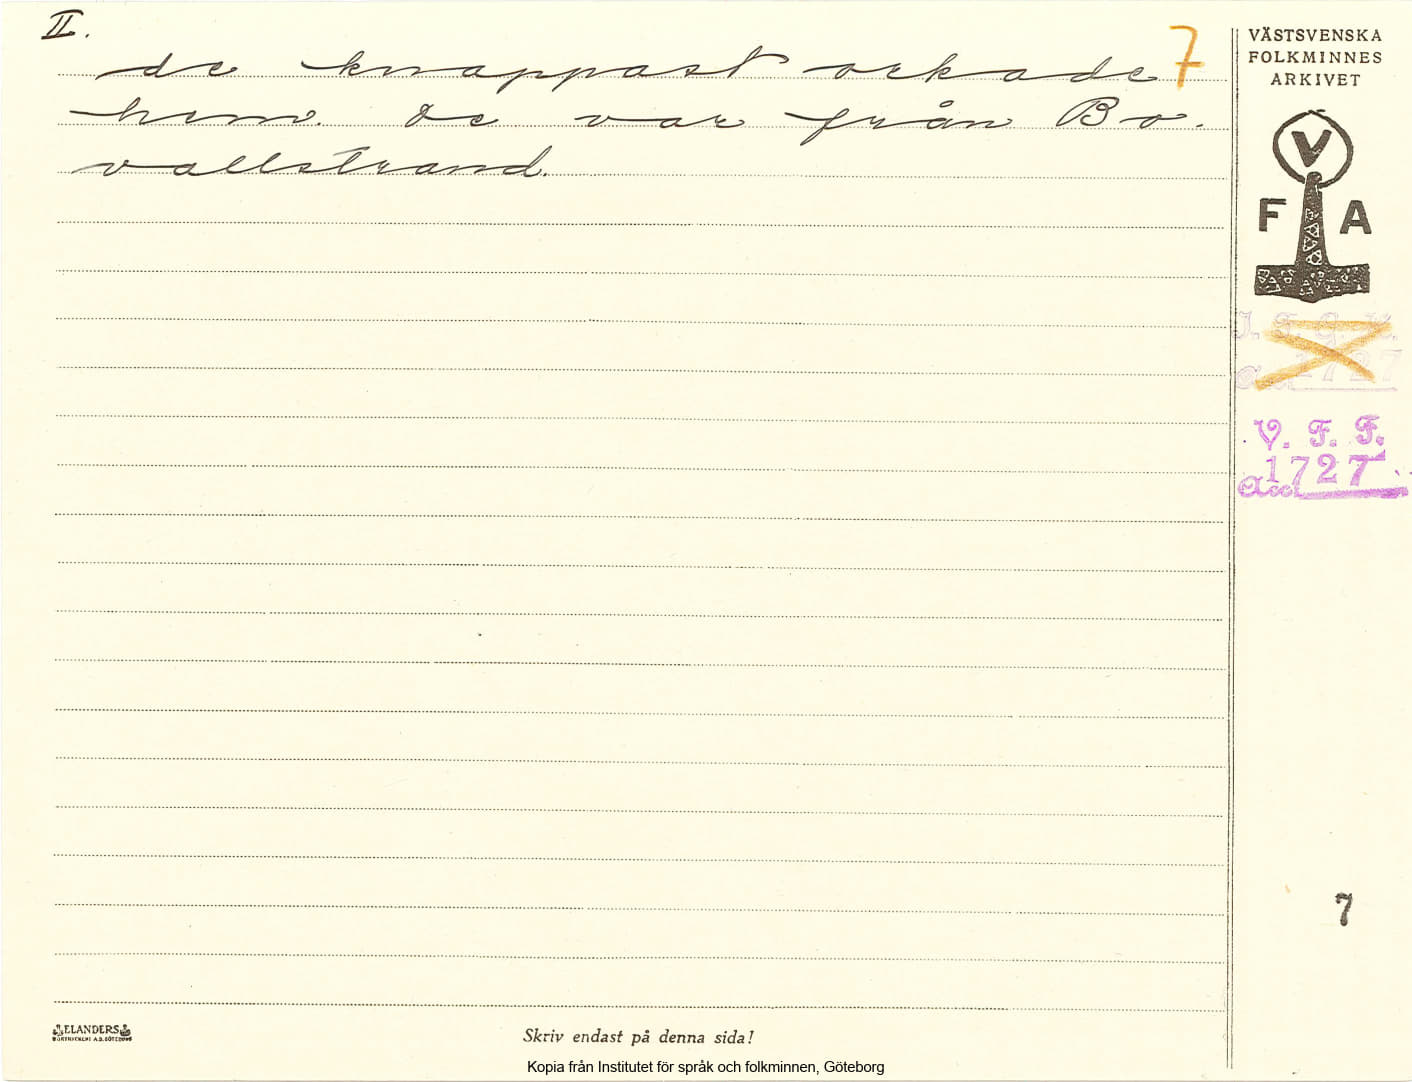 II.
de knappast orkade 7
hem. De var från Bo-
vallstrand.
VÄSTSVENSKA
FOLKMINNES
ARKIVET
V
F A
I. S. G. K.
acc 1727
V. F. F.
acc 1727
7
ELANDERS
BOKTRYCKERI A.B. GÖTEBORG
Skriv endast på denna sida!
Kopia från Institutet för språk och folkminnen, Göteborg